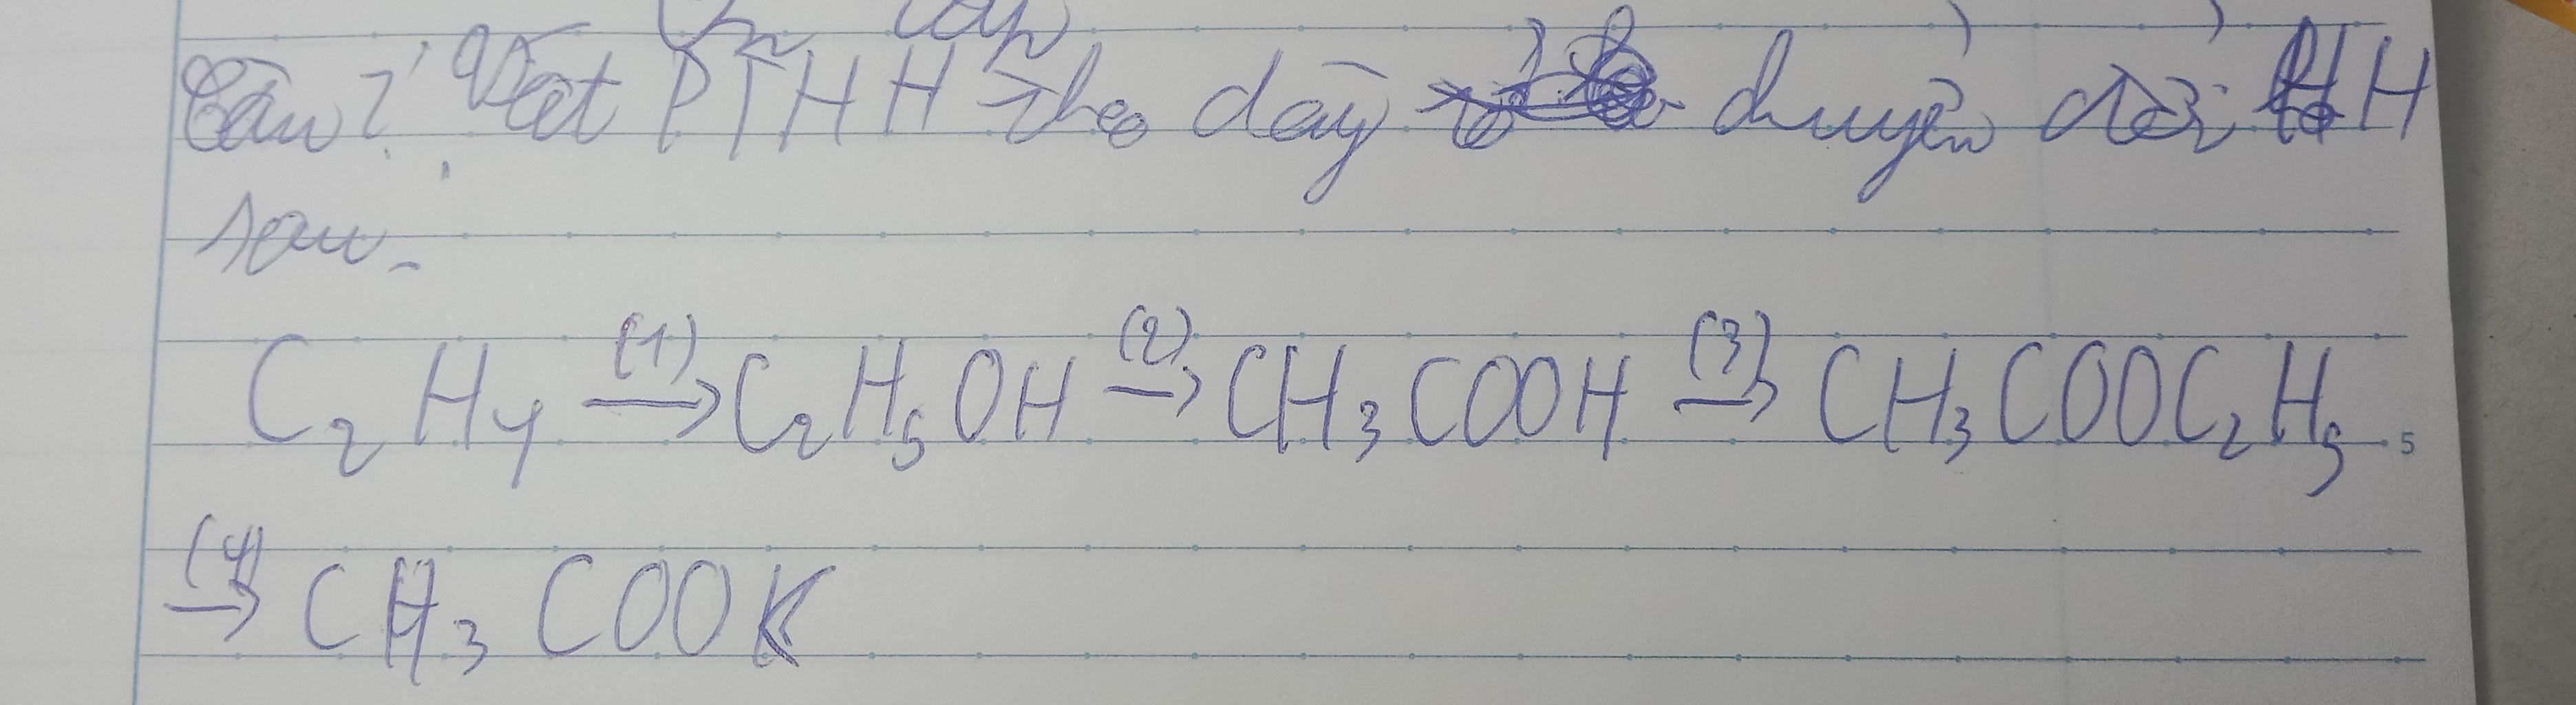 Câu 2: Viết PTHH theo dãy chuyển đổi HH
sau.
C₂H₄ (1)→ C₂H₅OH (2)→ CH₃COOH (3)→ CH₃COOC₂H₅
5
(4)→ CH₃COOK